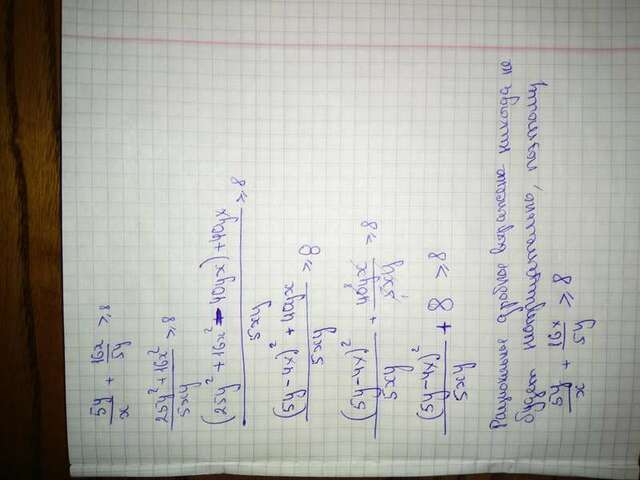 5y/x + 16x/5y ≥ 8
25y² + 16x² / 5xy ≥ 8
(25y² + 16x² - 40yx) + 40yx / 5xy ≥ 8
(5y - 4x)² + 40yx / 5xy ≥ 8
(5y - 4x)² / 5xy + 40yx / 5xy ≥ 8
(5y - 4x)² / 5xy + 8 ≥ 8
дробное выражение никогда не
будет неотрицательно, поэтому
5y/x + 16x/5y ≥ 8